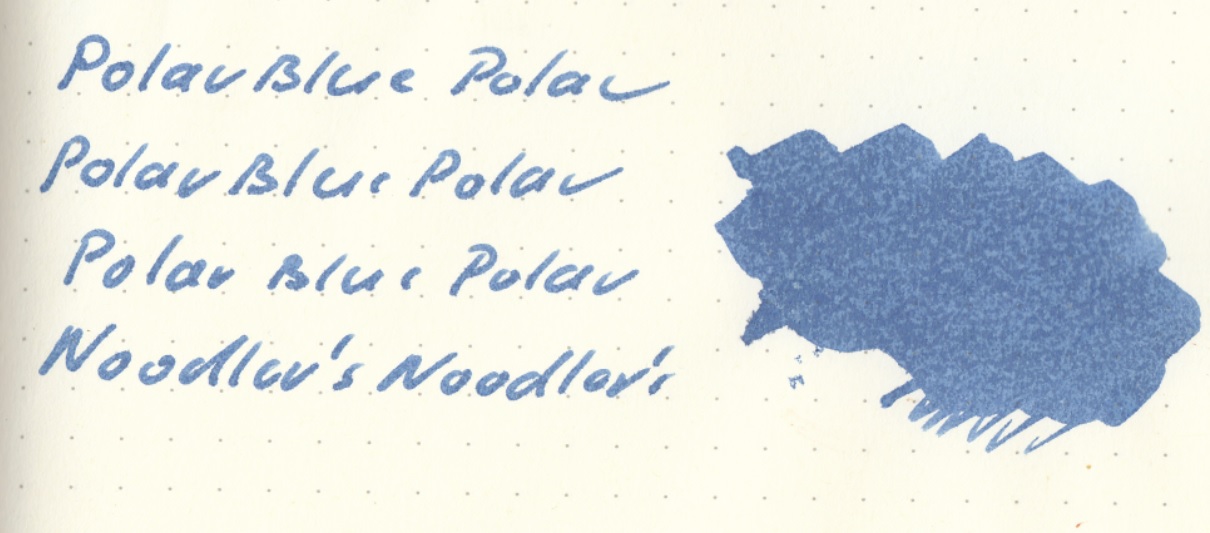 Polar Blue Polar
Polar Blue Polar
Polar Blue Polar
Noodler's Noodler's